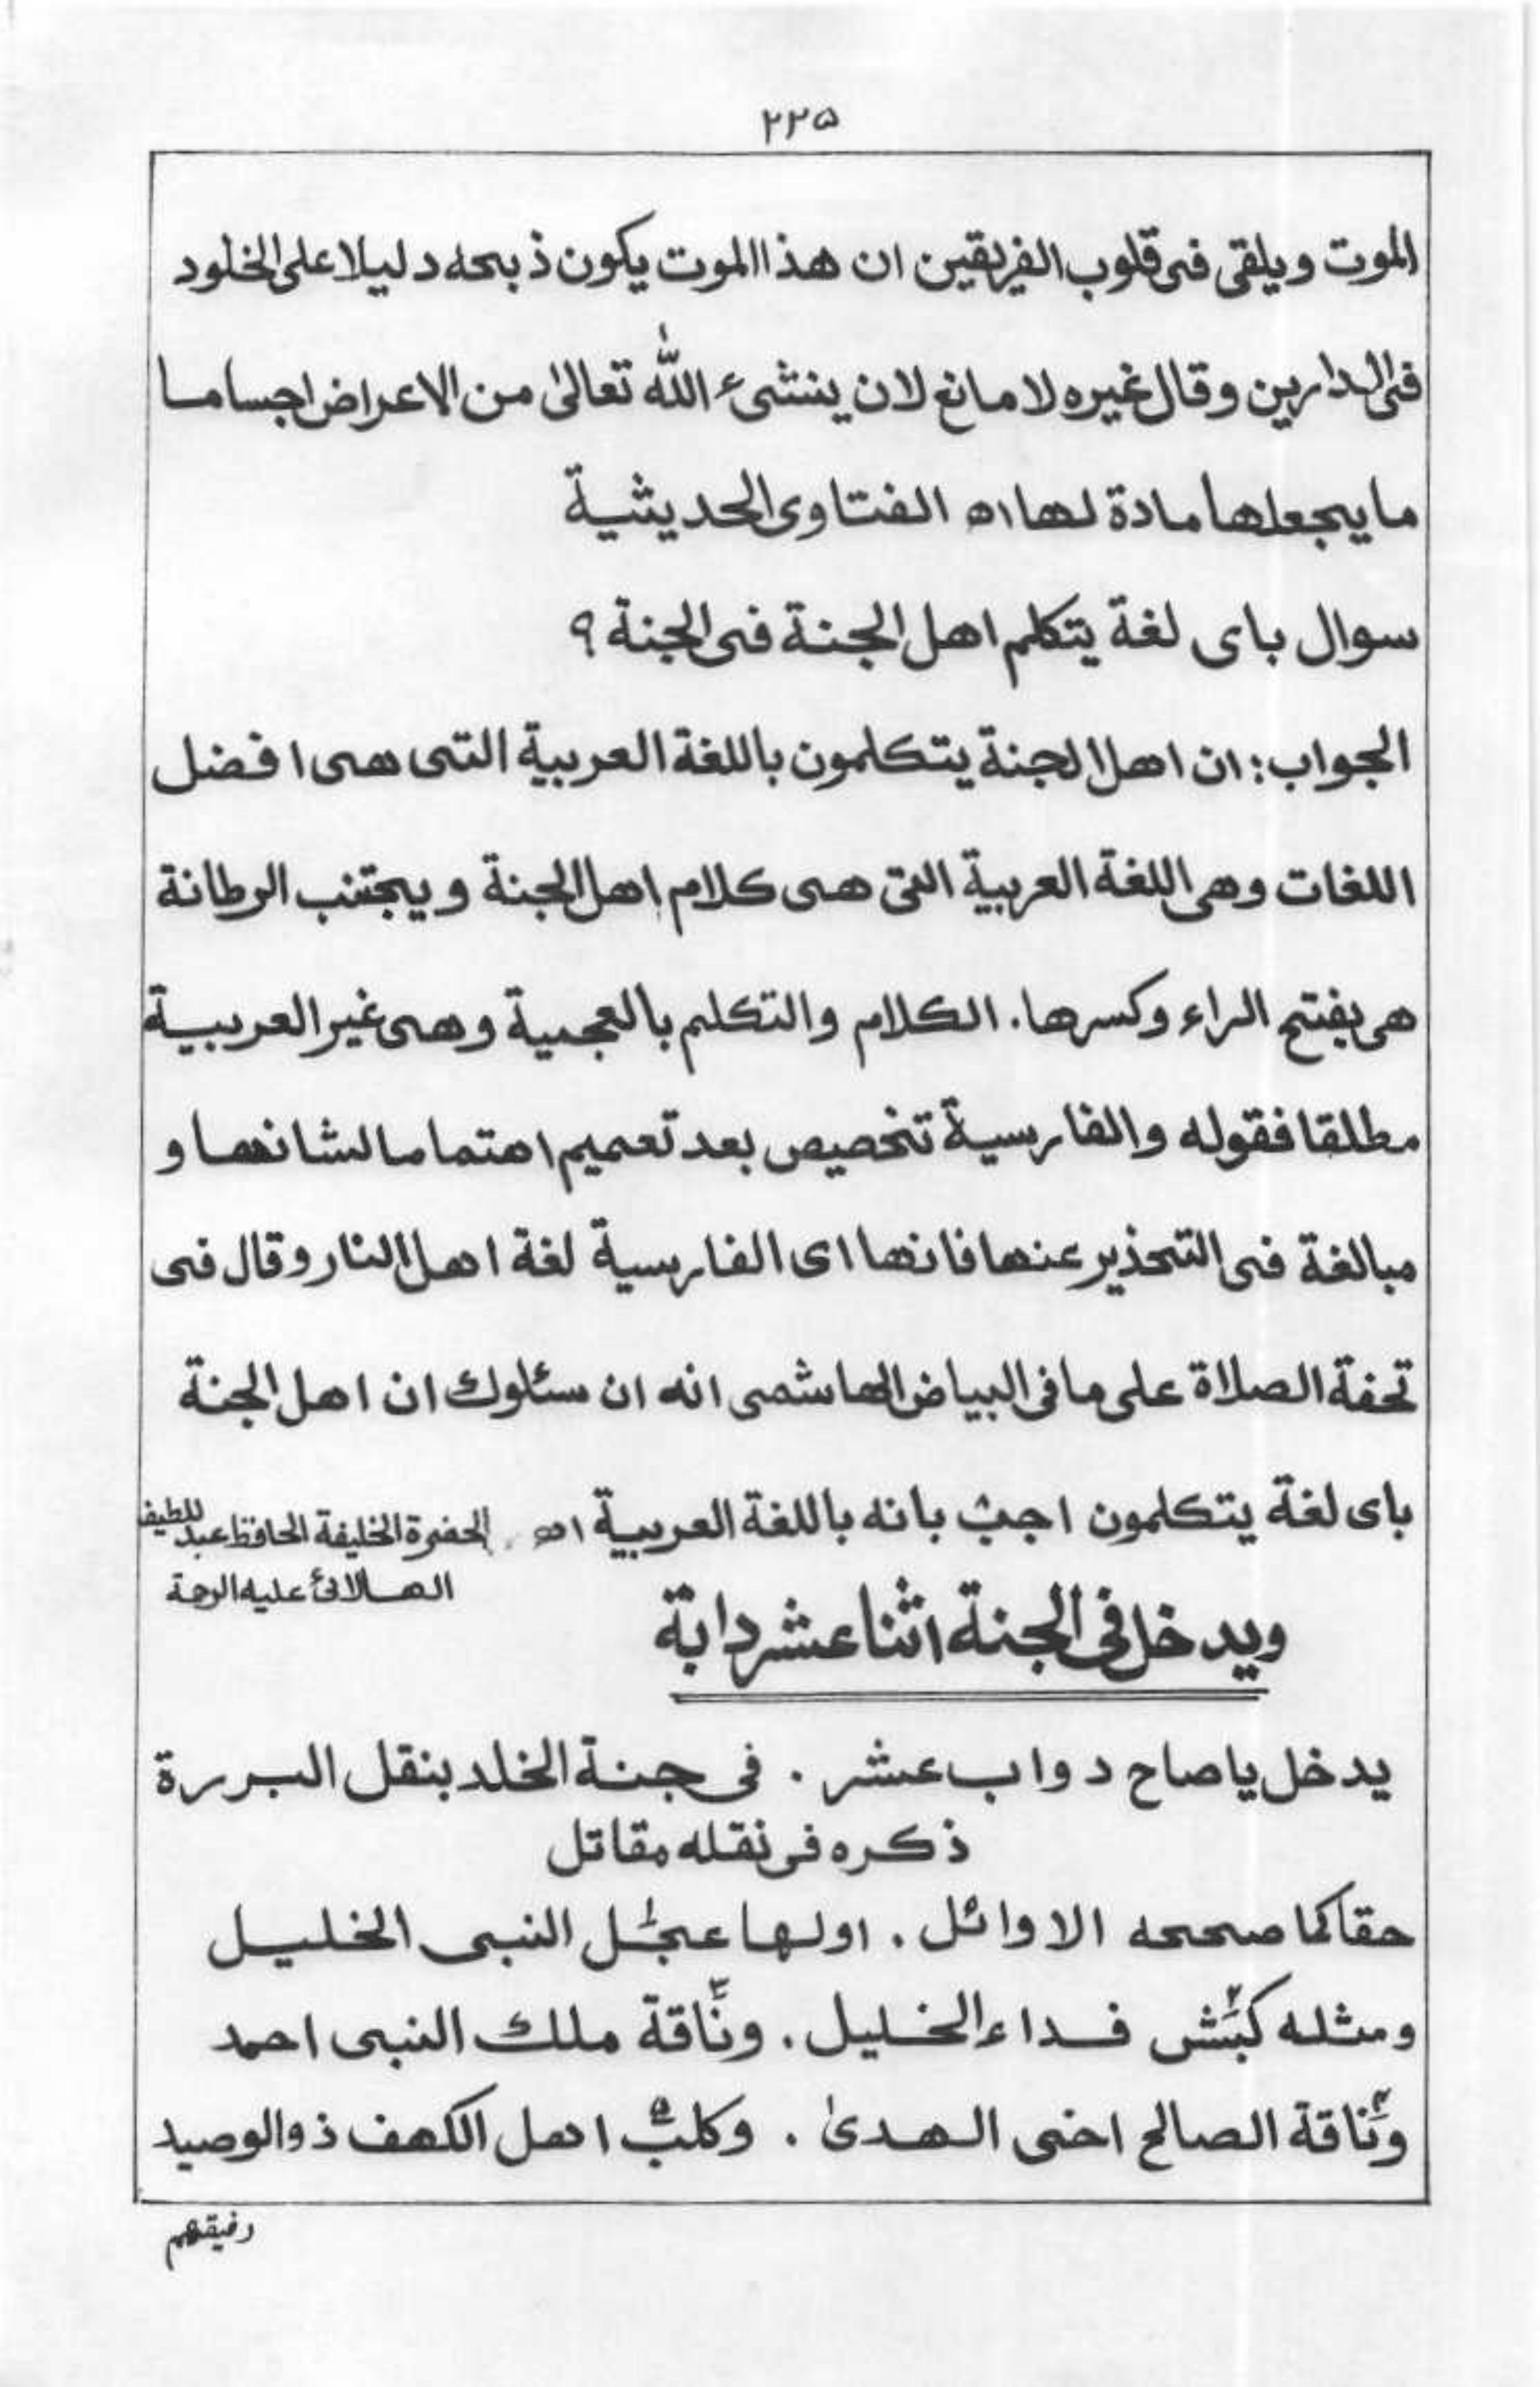 ۲۲۵
الموت ويلقى فى قلوب الفريقين ان هذا الموت يكون ذبحه دليلا على الخلود
فى الدارين وقال غيره لا مانع لان ينشىء الله تعالىٰ من الاعراض اجساما
ما يجعلها مادة لها اه الفتاوى الحديثية
سوال باى لغة يتكلم اهل الجنة فى الجنة ؟
الجواب: ان اهل الجنة يتكلمون باللغة العربية التى هى افضل
اللغات وهى اللغة العربية التى هى كلام اهل الجنة ويجتنب الرطانة
هى بفتح الراء وكسرها. الكلام والتكلم بالعجمية وهى غير العربية
مطلقا فقوله والفارسية تخصيص بعد تعميم اهتماما لشانها و
مبالغة فى التحذير عنها فانها اى الفارسية لغة اهل النار وقال فى
تحفة الصلاة على ما فى البياض الهاشمى انه ان سئلوك ان اهل الجنة
باى لغة يتكلمون اجبْ بانه باللغة العربية اه . الحضرة الخليفة الحافظ عبد اللطيف
الهالائ عليه الرحمة
ويدخل فى الجنة اثنا عشر دابة
يدخل يا صاح دواب عشر . فى جنة الخلد بنقل البررة
ذكره فى نقله مقاتل
حقا كما صححه الاوائل . اولها عجل النبى الخليل
ومثله كبش فداء الخليل . وناقة ملك النبى احمد
وناقة الصالح اخى الهدىٰ . وكلب اهل الكهف ذو الوصيد
رفيقهم